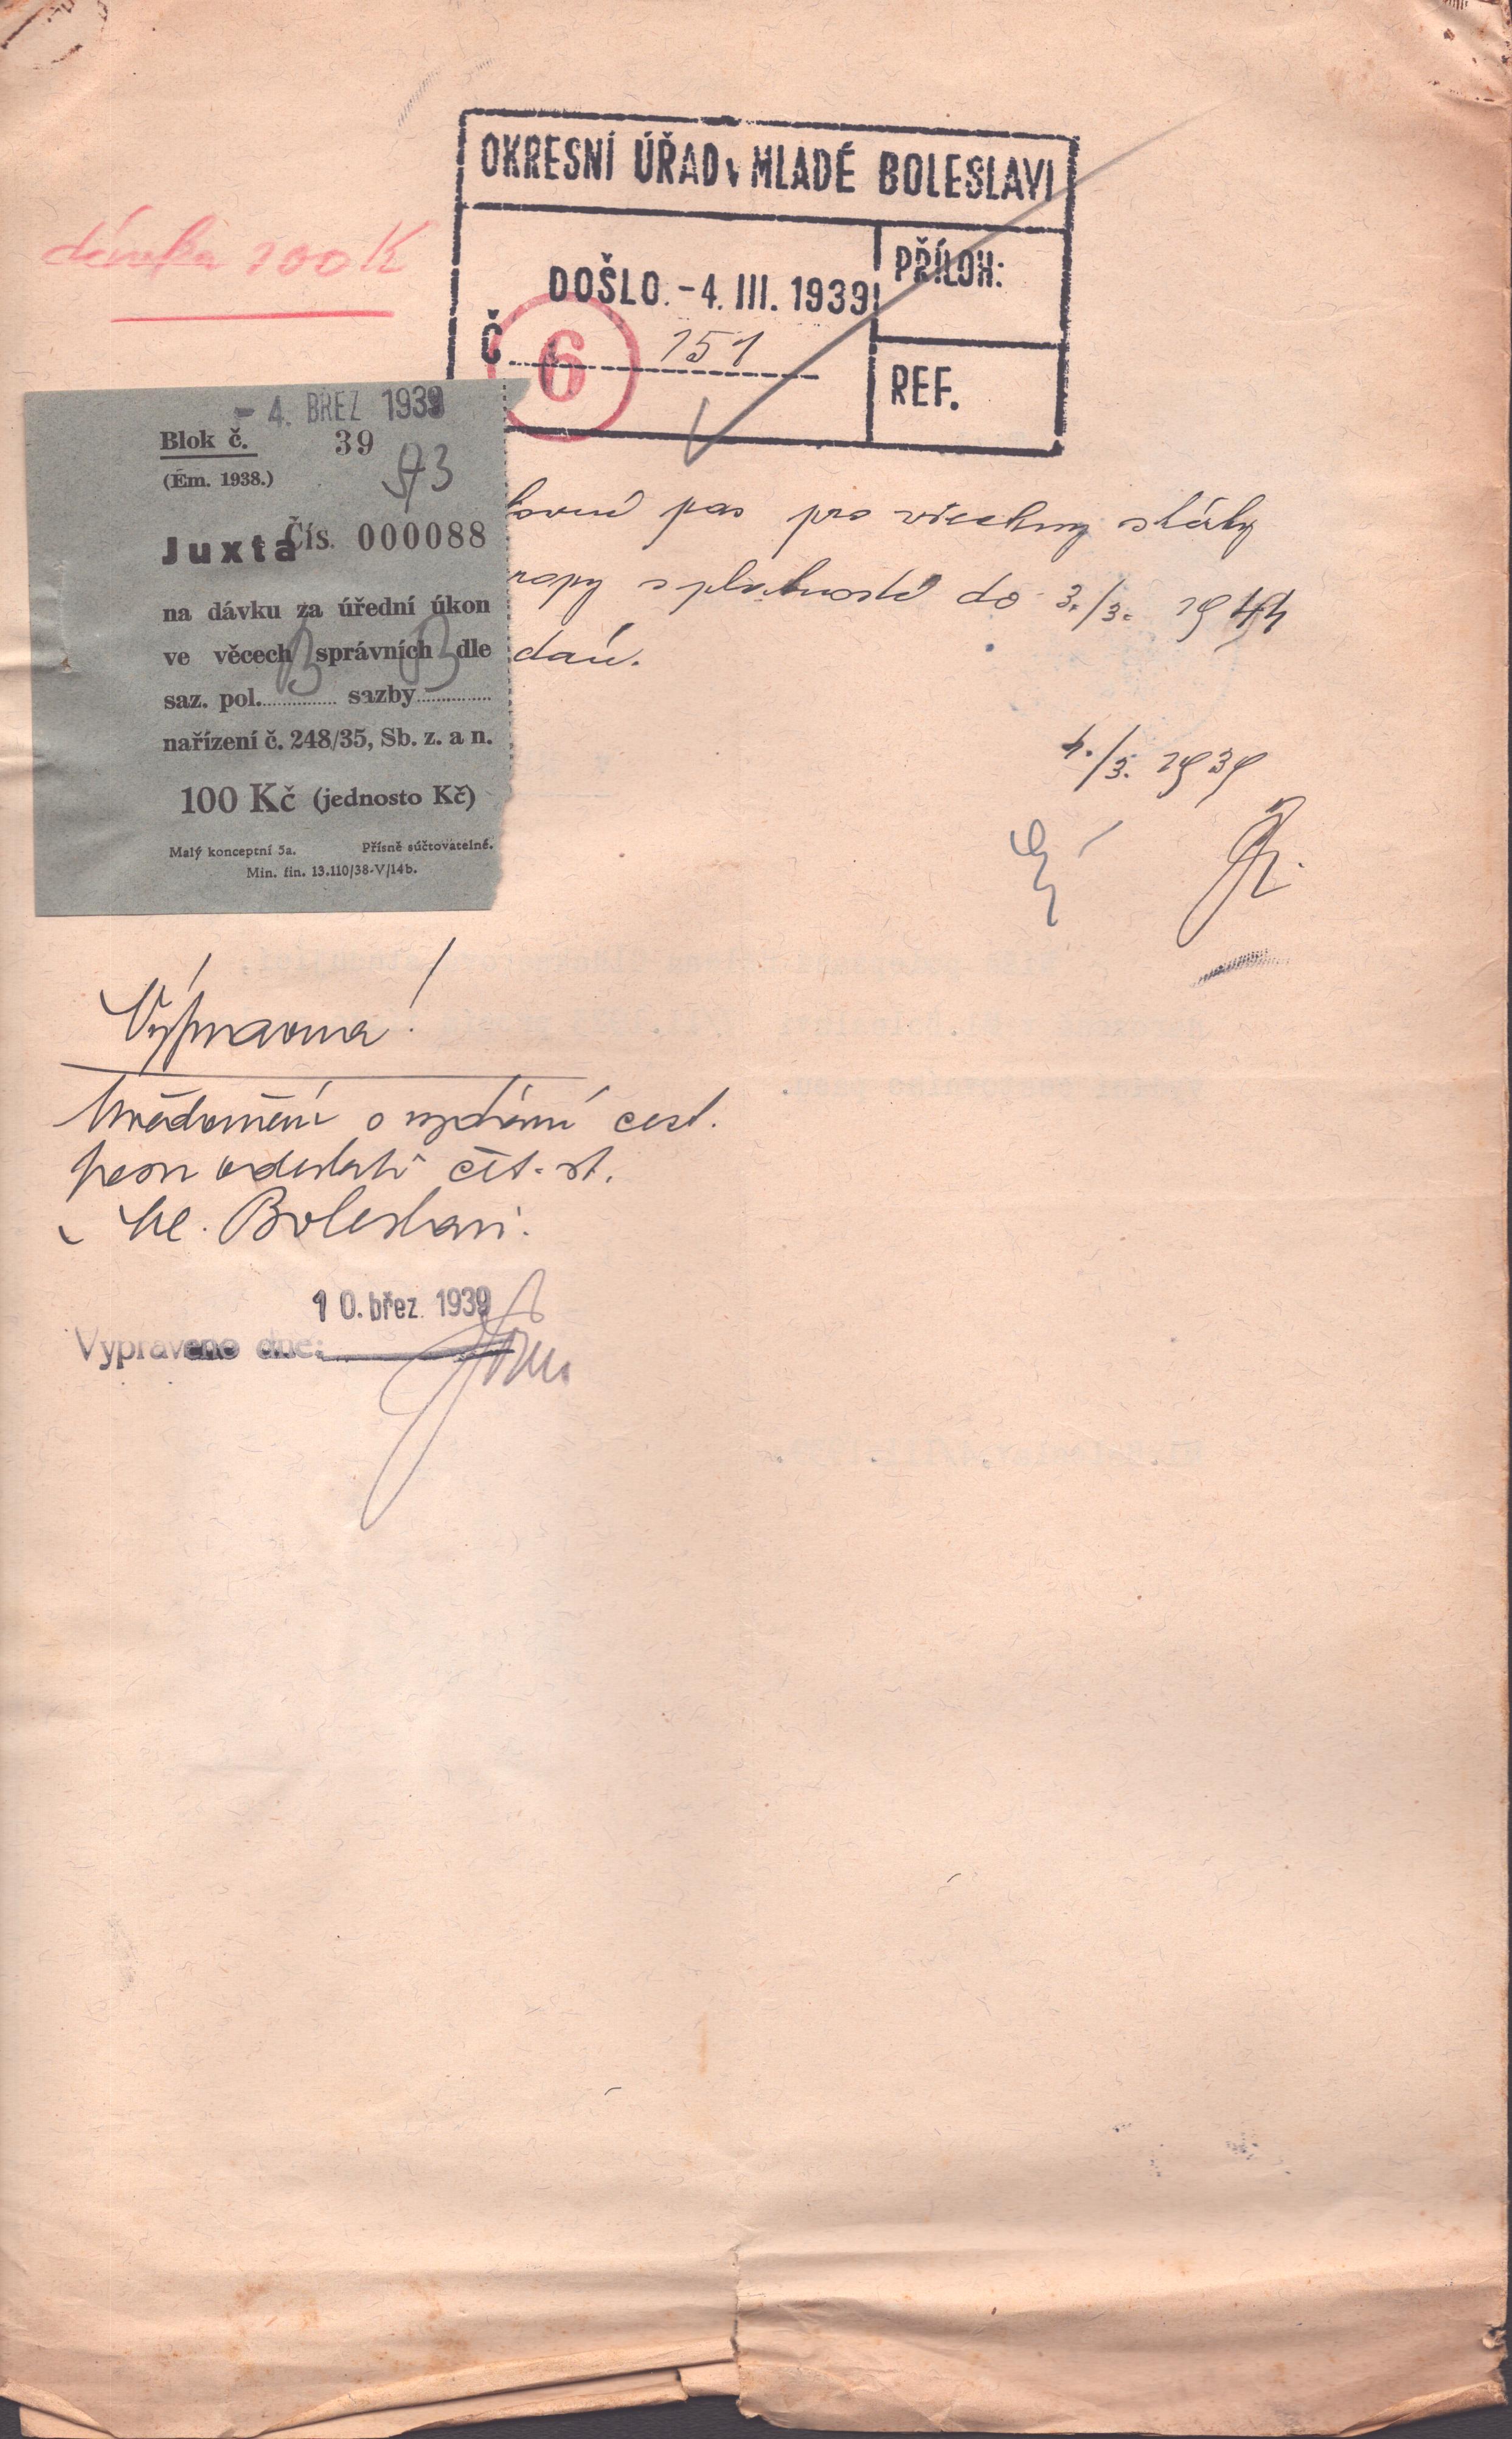 OKRESNÍ ÚŘAD v MLADÉ BOLESLAVI
DOŠLO. -4. III. 1939
PŘÍLOH:
Č. 151
6
REF.
dávka 100 K
- 4. BŘEZ 1939
Blok č. 39
(Ém. 1938.)
Juxta Čís. 000088
na dávku za úřední úkon
ve věcech správních dle
saz. pol. 13 sazby B
nařízení č. 248/35, Sb. z. a n.
100 Kč (jednosto Kč)
Malý konceptní 5a. Přísně súčtovatelné.
Min. fin. 13.110/38-V/14b.
tovní pas pro všechny státy
ropy s platností do 3./3. 1944
dán.
4./3. 1939
Výpravna!
Uvědomění o vydání cest.
pasu odeslati čet. st.
v Ml. Boleslavi.
10. břez. 1939
Vypraveno dne: